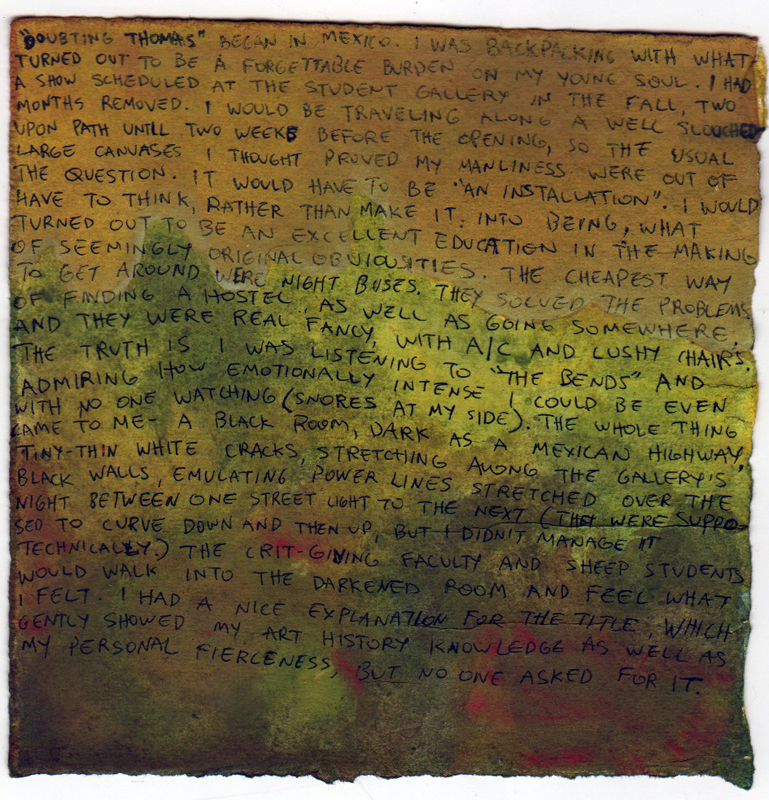 "DOUBTING THOMAS" BEGAN IN MEXICO. I WAS BACKPACKING WITH WHAT
TURNED OUT TO BE A FORGETTABLE BURDEN ON MY YOUNG SOUL. I HAD
A SHOW SCHEDULED AT THE STUDENT GALLERY IN THE FALL, TWO
MONTHS REMOVED. I WOULD BE TRAVELING ALONG A WELL SLOUCHED
UPON PATH UNTIL TWO WEEKS BEFORE THE OPENING, SO THE USUAL
LARGE CANVASES I THOUGHT PROVED MY MANLINESS WERE OUT OF
THE QUESTION. IT WOULD HAVE TO BE "AN INSTALLATION". I WOULD
HAVE TO THINK, RATHER THAN MAKE IT INTO BEING, WHAT
TURNED OUT TO BE AN EXCELLENT EDUCATION IN THE MAKING
OF SEEMINGLY ORIGINAL OBVIOUSITIES. THE CHEAPEST WAY
TO GET AROUND WERE NIGHT BUSES. THEY SOLVED THE PROBLEMS
OF FINDING A HOSTEL, AS WELL AS GOING SOMEWHERE.
AND THEY WERE REAL FANCY, WITH A/C AND LUSHY CHAIRS.
THE TRUTH IS I WAS LISTENING TO "THE BENDS" AND
ADMIRING HOW EMOTIONALLY INTENSE I COULD BE EVEN
WITH NO ONE WATCHING (SNORES AT MY SIDE). THE WHOLE THING
CAME TO ME - A BLACK ROOM, DARK AS A MEXICAN HIGHWAY,
TINY-THIN WHITE CRACKS, STRETCHING ALONG THE GALLERY'S
BLACK WALLS, EMULATING POWER LINES STRETCHED OVER THE
NIGHT BETWEEN ONE STREET LIGHT TO THE NEXT (THEY WERE SUPPO-
SED TO CURVE DOWN AND THEN UP, BUT I DIDN'T MANAGE IT
TECHNICALLY.) THE CRIT-GIVING FACULTY AND SHEEP STUDENTS
WOULD WALK INTO THE DARKENED ROOM AND FEEL WHAT
I FELT. I HAD A NICE EXPLANATION FOR THE TITLE, WHICH
GENTLY SHOWED MY ART HISTORY KNOWLEDGE AS WELL AS
MY PERSONAL FIERCENESS, BUT NO ONE ASKED FOR IT.